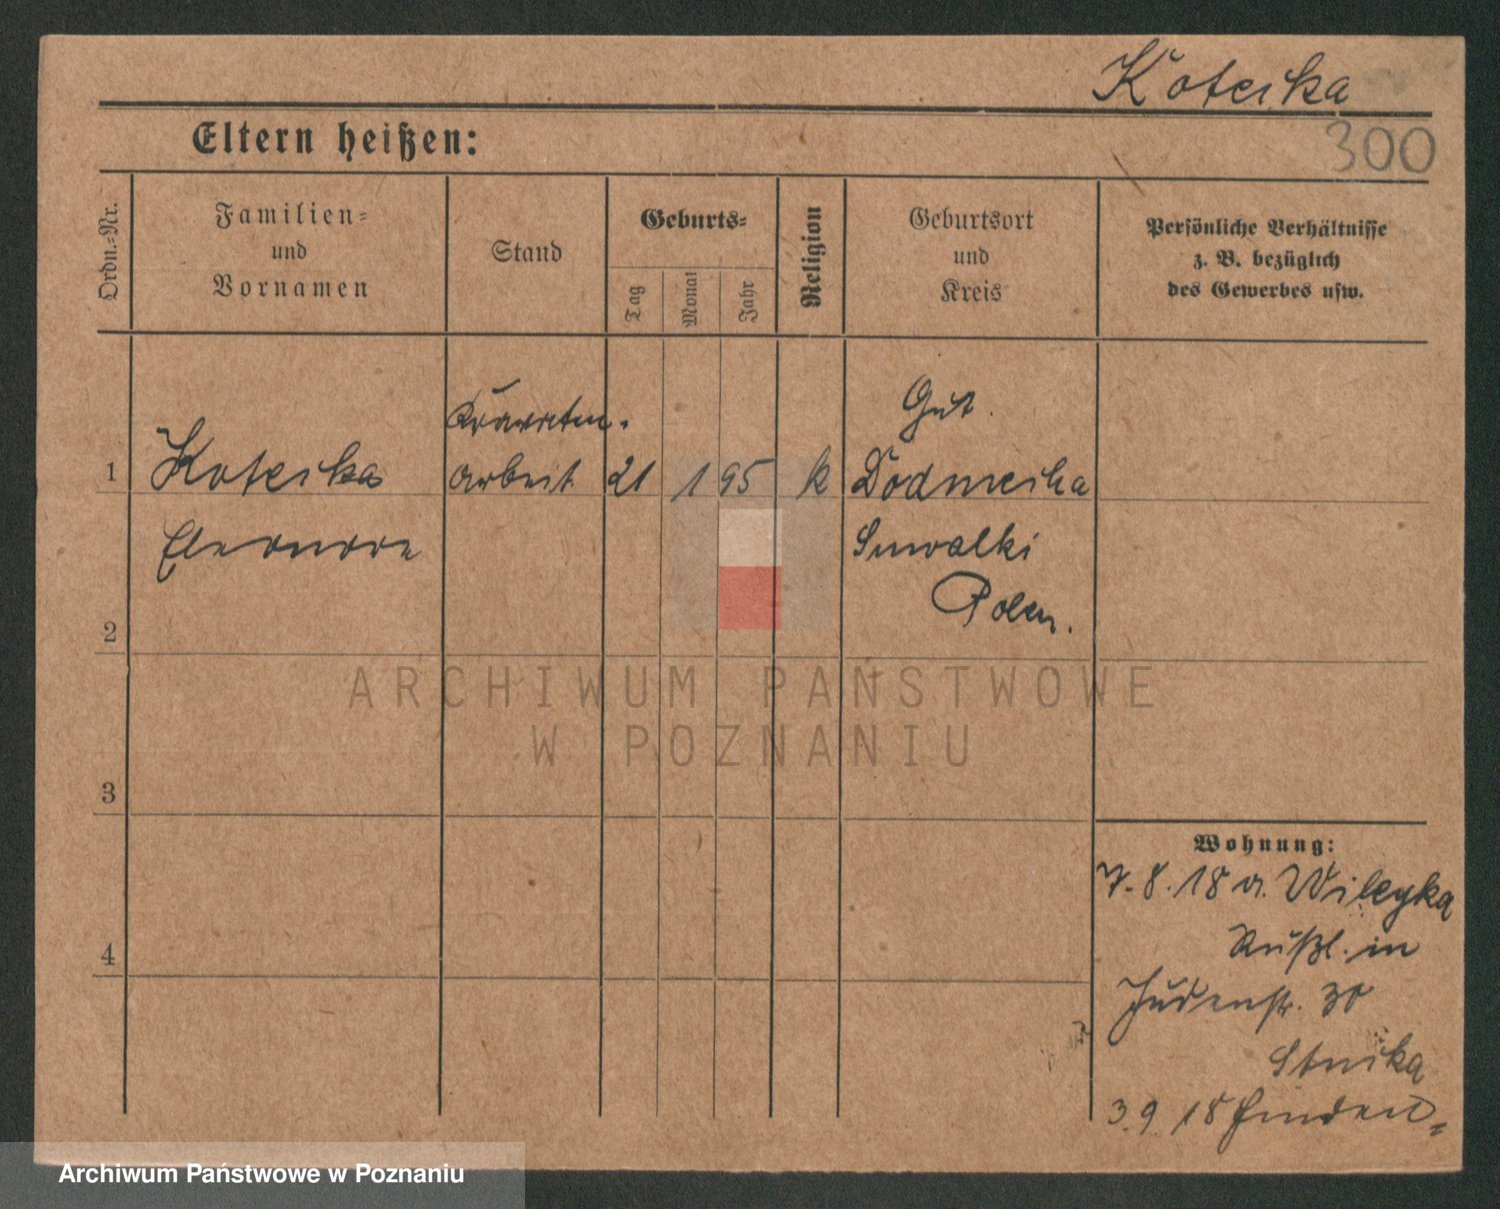 Koteika
300
Eltern heißen:
Ordn.-Nr.
Familien-
und
Vornamen
Stand
Geburts-
Tag
Monat
Jahr
Religion
Geburtsort
und
Kreis
Persönliche Verhältnisse
z. B. bezüglich
des Gewerbes usw.
Gut.
1 Koteika arbeit 21 1 95 k
Eleonore Suwalki
Polen.
2
3
4
ARCHIWUM PAŃSTWOWE
W POZNANIU
Wohnung:
7.8.18 a. Wileyka
Rußl. in
Judenstr. 30
3.9 18
Archiwum Państwowe w Poznaniu